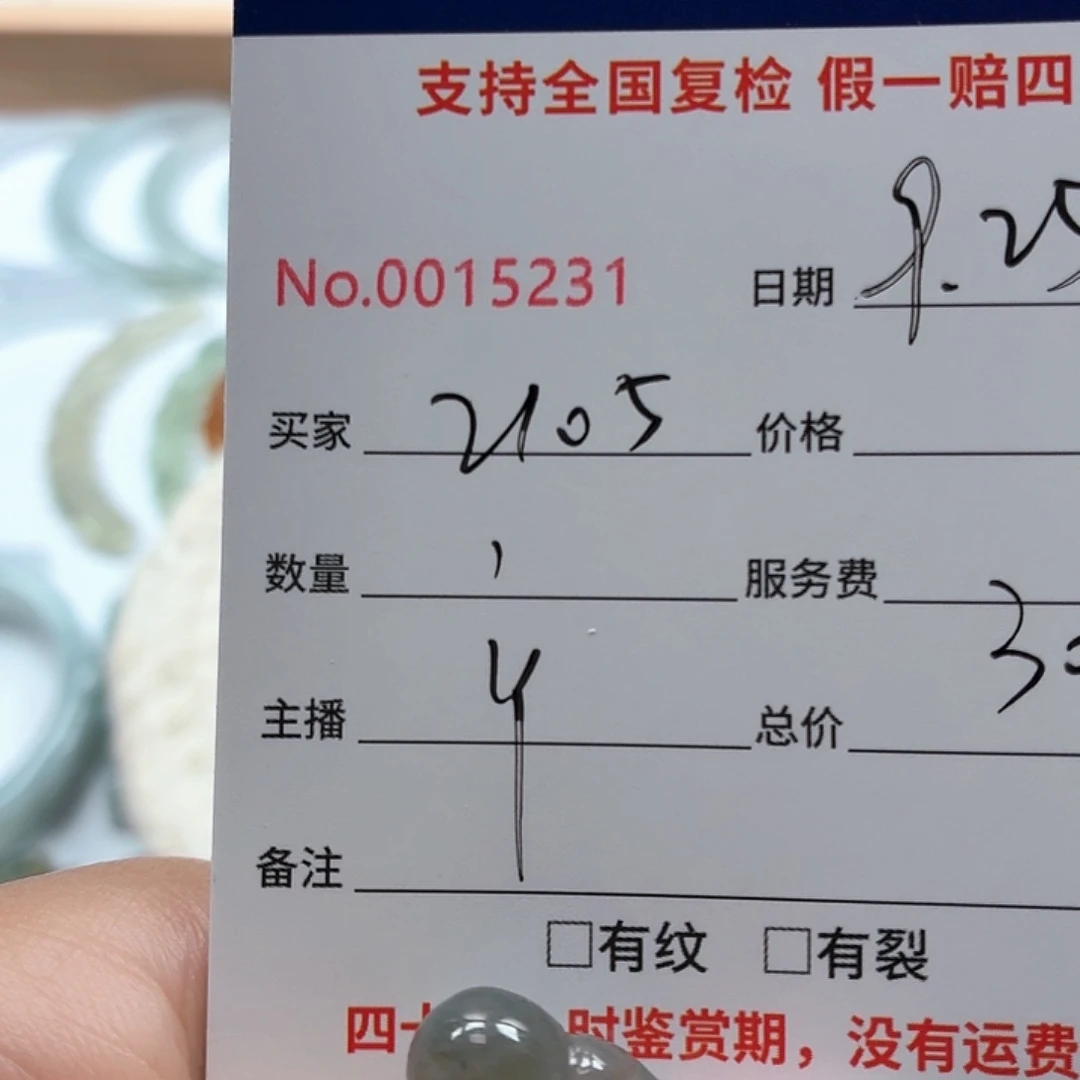 支持全国复检 假一赔四
No.0015231 日期 8.25
买家 2105 价格
数量 1 服务费
主播 4 总价 30
备注
□有纹 □有裂
四十 时鉴赏期，没有运费